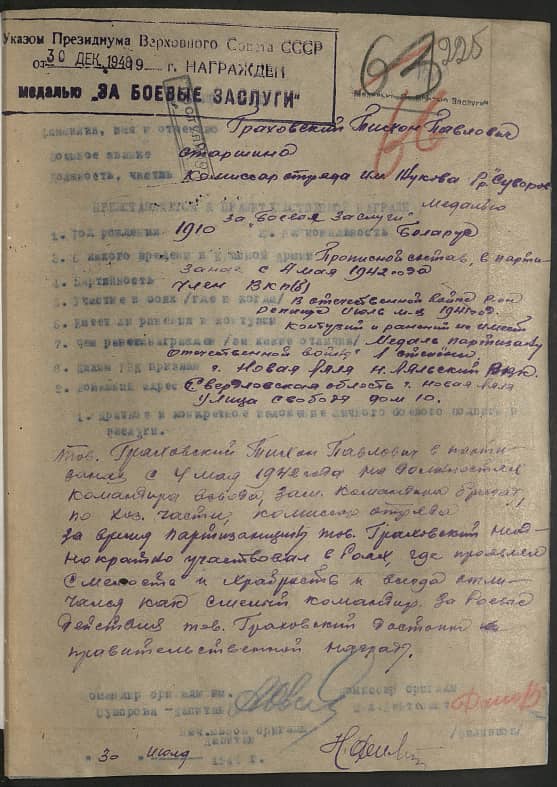 Указом Президиума Верховного Совета СССР
от 30 ДЕК 1948 г. НАГРАЖДЕН
медалью „ЗА БОЕВЫЕ ЗАСЛУГИ"
63
225
Фамилия, имя и отчество Граховский Тихон Павлович
Военное звание старшина
Должность, часть Комиссар отряда им Жукова бр. Суворов
медалью
За "Боевые Заслуги"
1. Год рождения 1910 2. Национальность Беларус
3. С какого времени в Красной Армии Приписной состав, в парти-
занах с 4 мая 1942 года
4. Партийность Член ВКП(б)
5. Участие в боях /где и когда/ В отечественной войне
июль м-ц 1941 год.
6. Имеет ли ранения и контузии Контузий и ранений не имеет
7. Чем ранее награжден /за какие отличия/ Медаль партизану
отечественной войны 1 степени
8. Каким РВК призван г. Новая Ляля Н. Лялинский РВК.
9. Домашний адрес Свердловская область г. Новая Ляля
улица Свобода дом 10.
1. Краткое и конкретное изложение личного боевого подвига и
заслуги.
Тов. Граховский Тихон Павлович в парти-
занах с 4 мая 1942 года на должностях
командира взвода, зам. командира бригады
по хоз. части, комиссар отряда
За время партизанщины тов. Граховский неод-
нократно участвовал в боях, где проявлял
смелость и храбрость и всегда отли-
чался как смелый командир. За боевые
действия тов. Граховский достоин
правительственной награды.
Командир бригады им. Комиссар бригады
Суворова - Капитан
Нач. штаба бригады
капитан
30 июля 194 г.